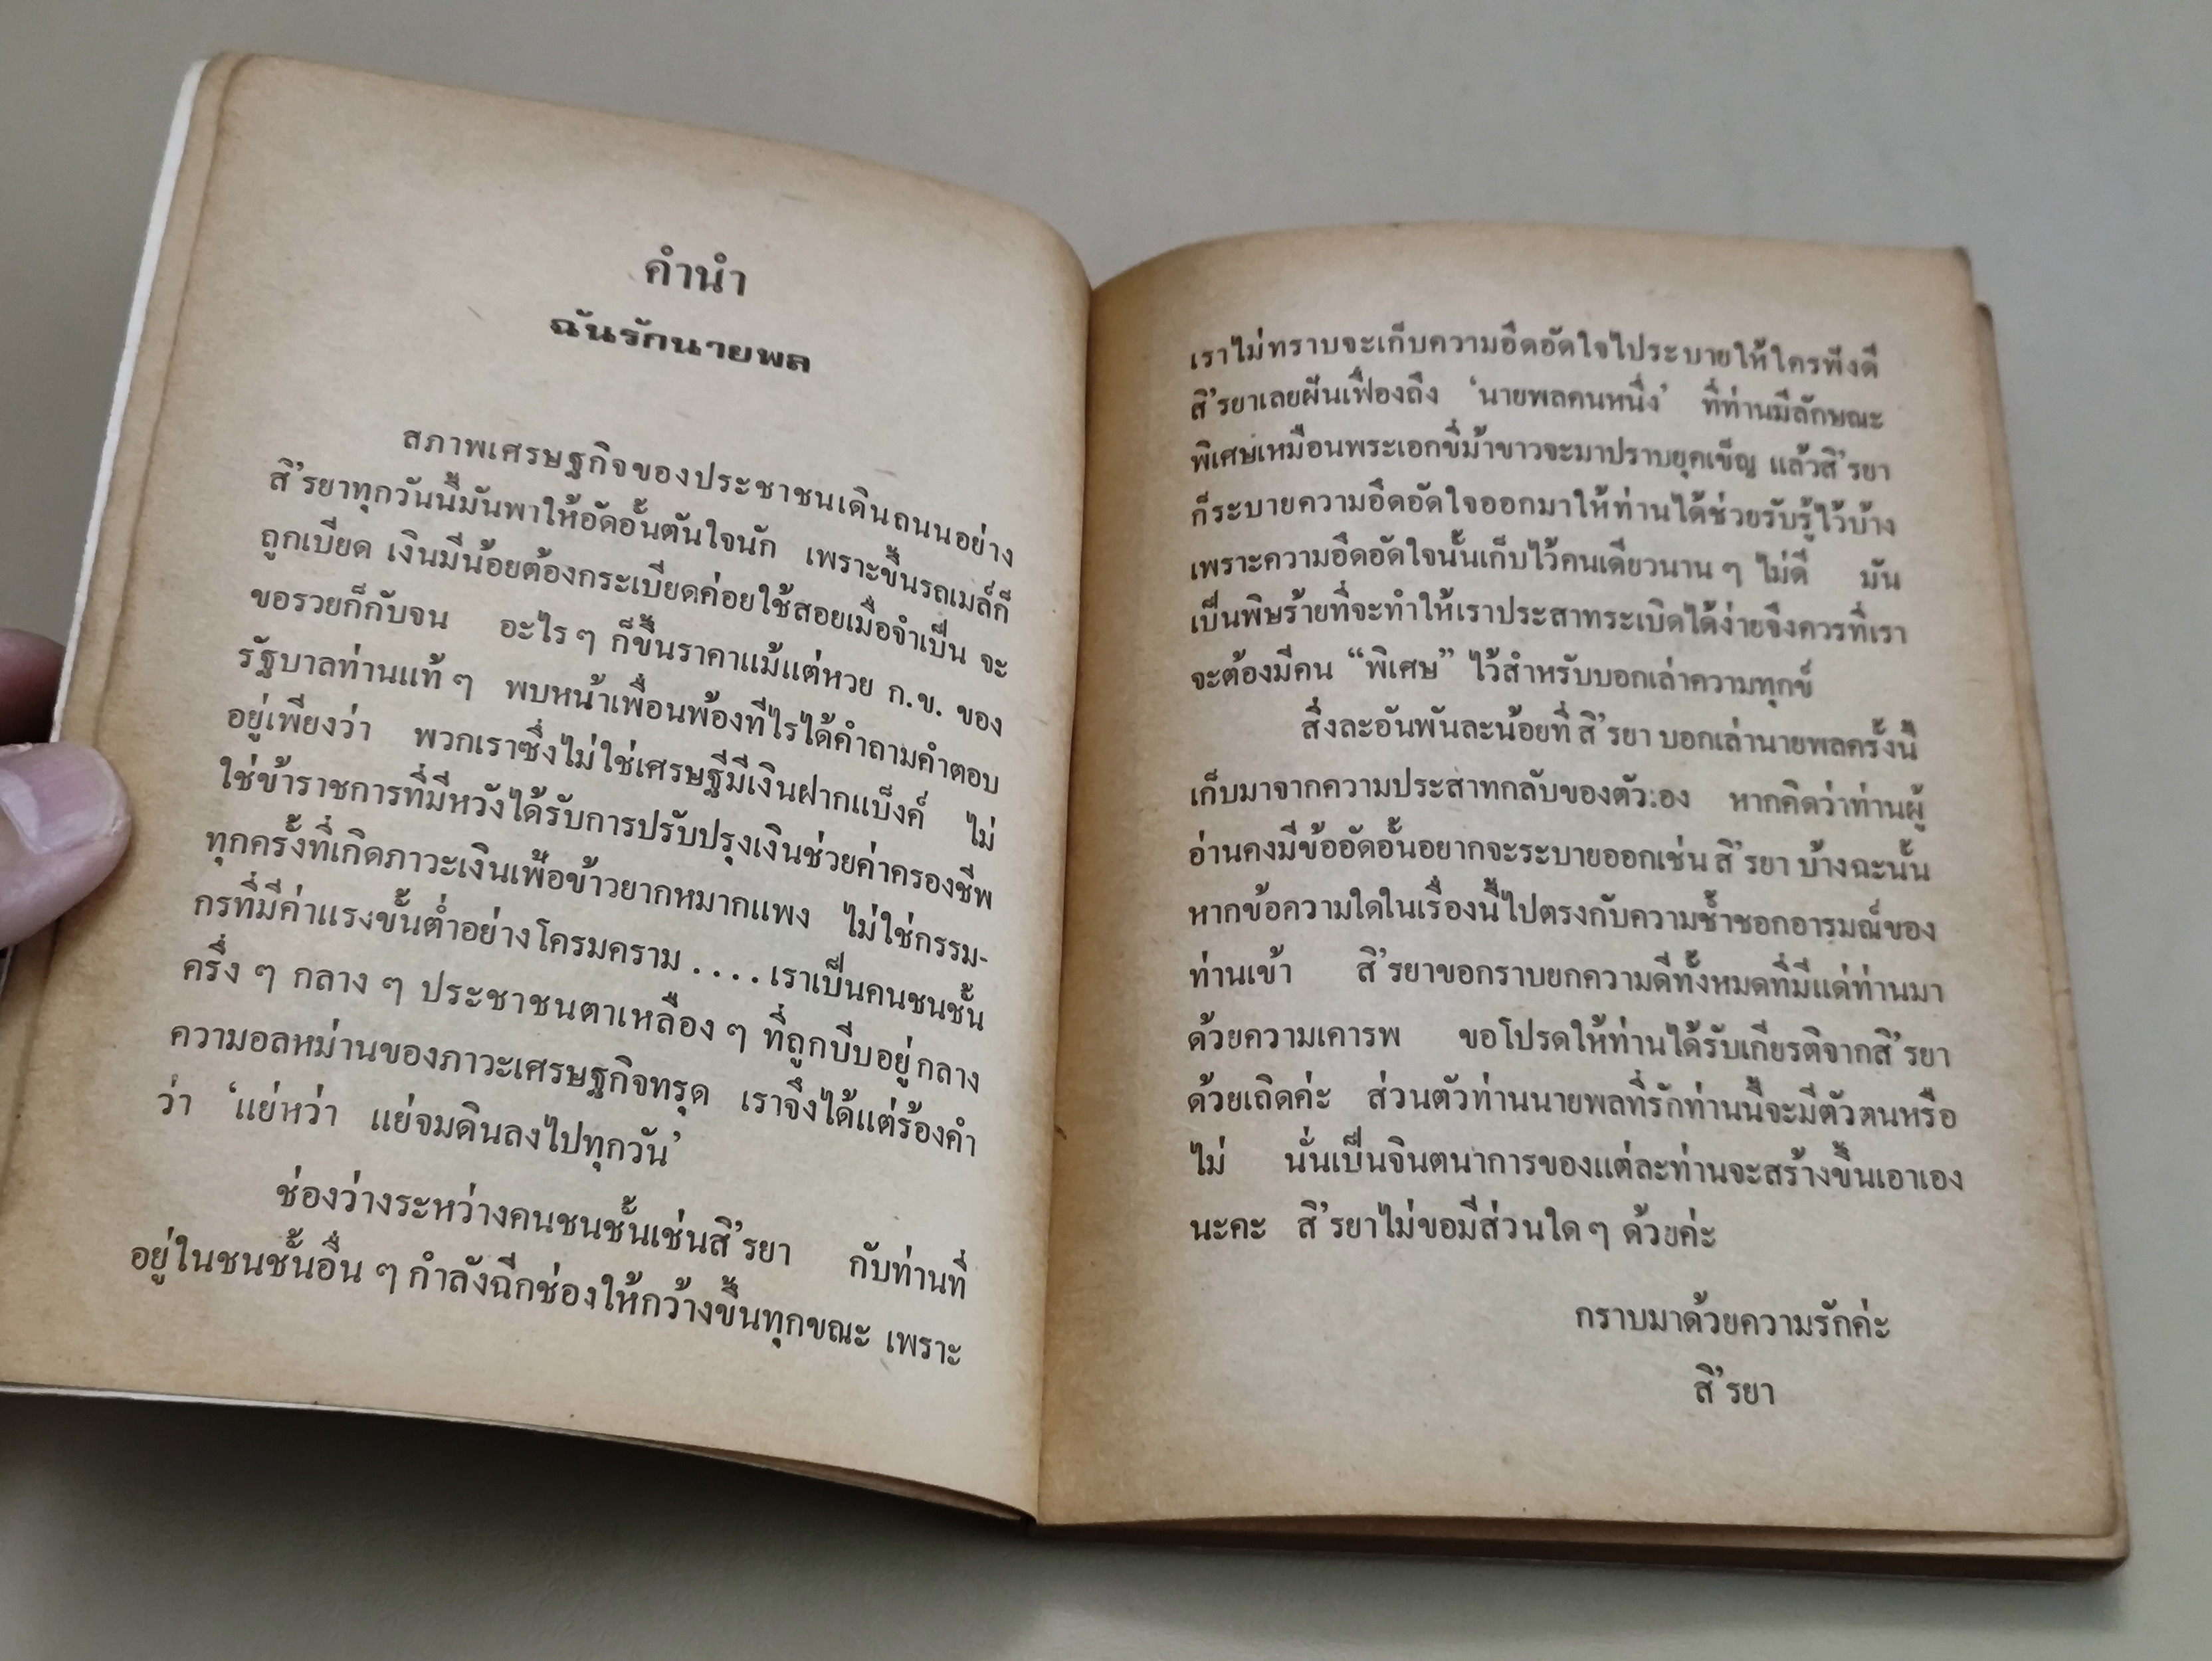 คำนำ
ฉันรักนายพล
สภาพเศรษฐกิจของประชาชนเดินถนนอย่าง
สิ’รยาทุกวันนี้มันพาให้อัดอั้นตันใจนัก เพราะขึ้นรถเมล์ก็
ถูกเบียด เงินมีน้อยต้องกระเบียดค่อยใช้สอยเมื่อจำเป็น จะ
ขอรวยก็กับจน อะไร ๆ ก็ขึ้นราคาแม้แต่หวย ก.ข. ของ
รัฐบาลท่านแท้ ๆ พบหน้าเพื่อนพ้องทีไรได้คำถามคำตอบ
อยู่เพียงว่า พวกเราซึ่งไม่ใช่เศรษฐีมีเงินฝากแบ็งค์ ไม่
ใช่ข้าราชการที่มีหวังได้รับการปรับปรุงเงินช่วยค่าครองชีพ
ทุกครั้งที่เกิดภาวะเงินเฟ้อข้าวยากหมากแพง ไม่ใช่กรรม-
กรที่มีค่าแรงขั้นต่ำอย่างโครมคราม . . . . เราเป็นคนชนชั้น
ครึ่ง ๆ กลาง ๆ ประชาชนตาเหลือง ๆ ที่ถูกบีบอยู่กลาง
ความอลหม่านของภาวะเศรษฐกิจทรุด เราจึงได้แต่ร้องคำ
ว่า ‘แย่หว่า แย่จมดินลงไปทุกวัน’
ช่องว่างระหว่างคนชนชั้นเช่นสิ’รยา กับท่านที่
อยู่ในชนชั้นอื่น ๆ กำลังฉีกช่องให้กว้างขึ้นทุกขณะ เพราะ
เราไม่ทราบจะเก็บความอึดอัดใจไประบายให้ใครฟังดี
สิ’รยาเลยฝันเฟื่องถึง ‘นายพลคนหนึ่ง’ ที่ท่านมีลักษณะ
พิเศษเหมือนพระเอกขี่ม้าขาวจะมาปราบยุคเข็ญ แล้วสิ’รยา
ก็ระบายความอึดอัดใจออกมาให้ท่านได้ช่วยรับรู้ไว้บ้าง
เพราะความอึดอัดใจนั้นเก็บไว้คนเดียวนาน ๆ ไม่ดี มัน
เป็นพิษร้ายที่จะทำให้เราประสาทระเบิดได้ง่ายจึงควรที่เรา
จะต้องมีคน “พิเศษ” ไว้สำหรับบอกเล่าความทุกข์
สิ่งละอันพันละน้อยที่ สิ’รยา บอกเล่านายพลครั้งนี้
เก็บมาจากความประสาทกลับของตัว:อง หากคิดว่าท่านผู้
อ่านคงมีข้ออัดอั้นอยากจะระบายออกเช่น สิ’รยา บ้างฉะนั้น
หากข้อความใดในเรื่องนี้ไปตรงกับความช้ำชอกอารมณ์ของ
ท่านเข้า สิ’รยาขอกราบยกความดีทั้งหมดที่มีแด่ท่านมา
ด้วยความเคารพ ขอโปรดให้ท่านได้รับเกียรติจากสิ’รยา
ด้วยเถิดค่ะ ส่วนตัวท่านนายพลที่รักท่านนี้จะมีตัวตนหรือ
ไม่ นั่นเป็นจินตนาการของแต่ละท่านจะสร้างขึ้นเอาเอง
นะคะ สิ’รยาไม่ขอมีส่วนใด ๆ ด้วยค่ะ
กราบมาด้วยความรักค่ะ
สิ’รยา